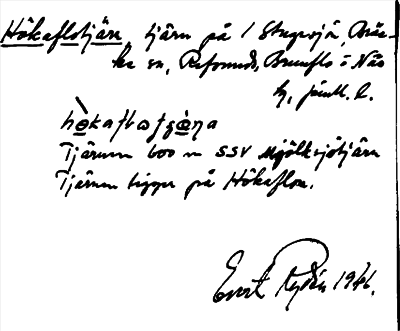 Hökaflotjärn, tjärn på / Stugusjö, Bräc-
ke sn, Refsunds, Brunflo o Näs
tg, Jämtl. l.
hökaflotjäṇa
Tjärnen 600 m SSV Mjölksjötjärn
Tjärnen ligger på Hökaflon.
Evert Rydén 1946.